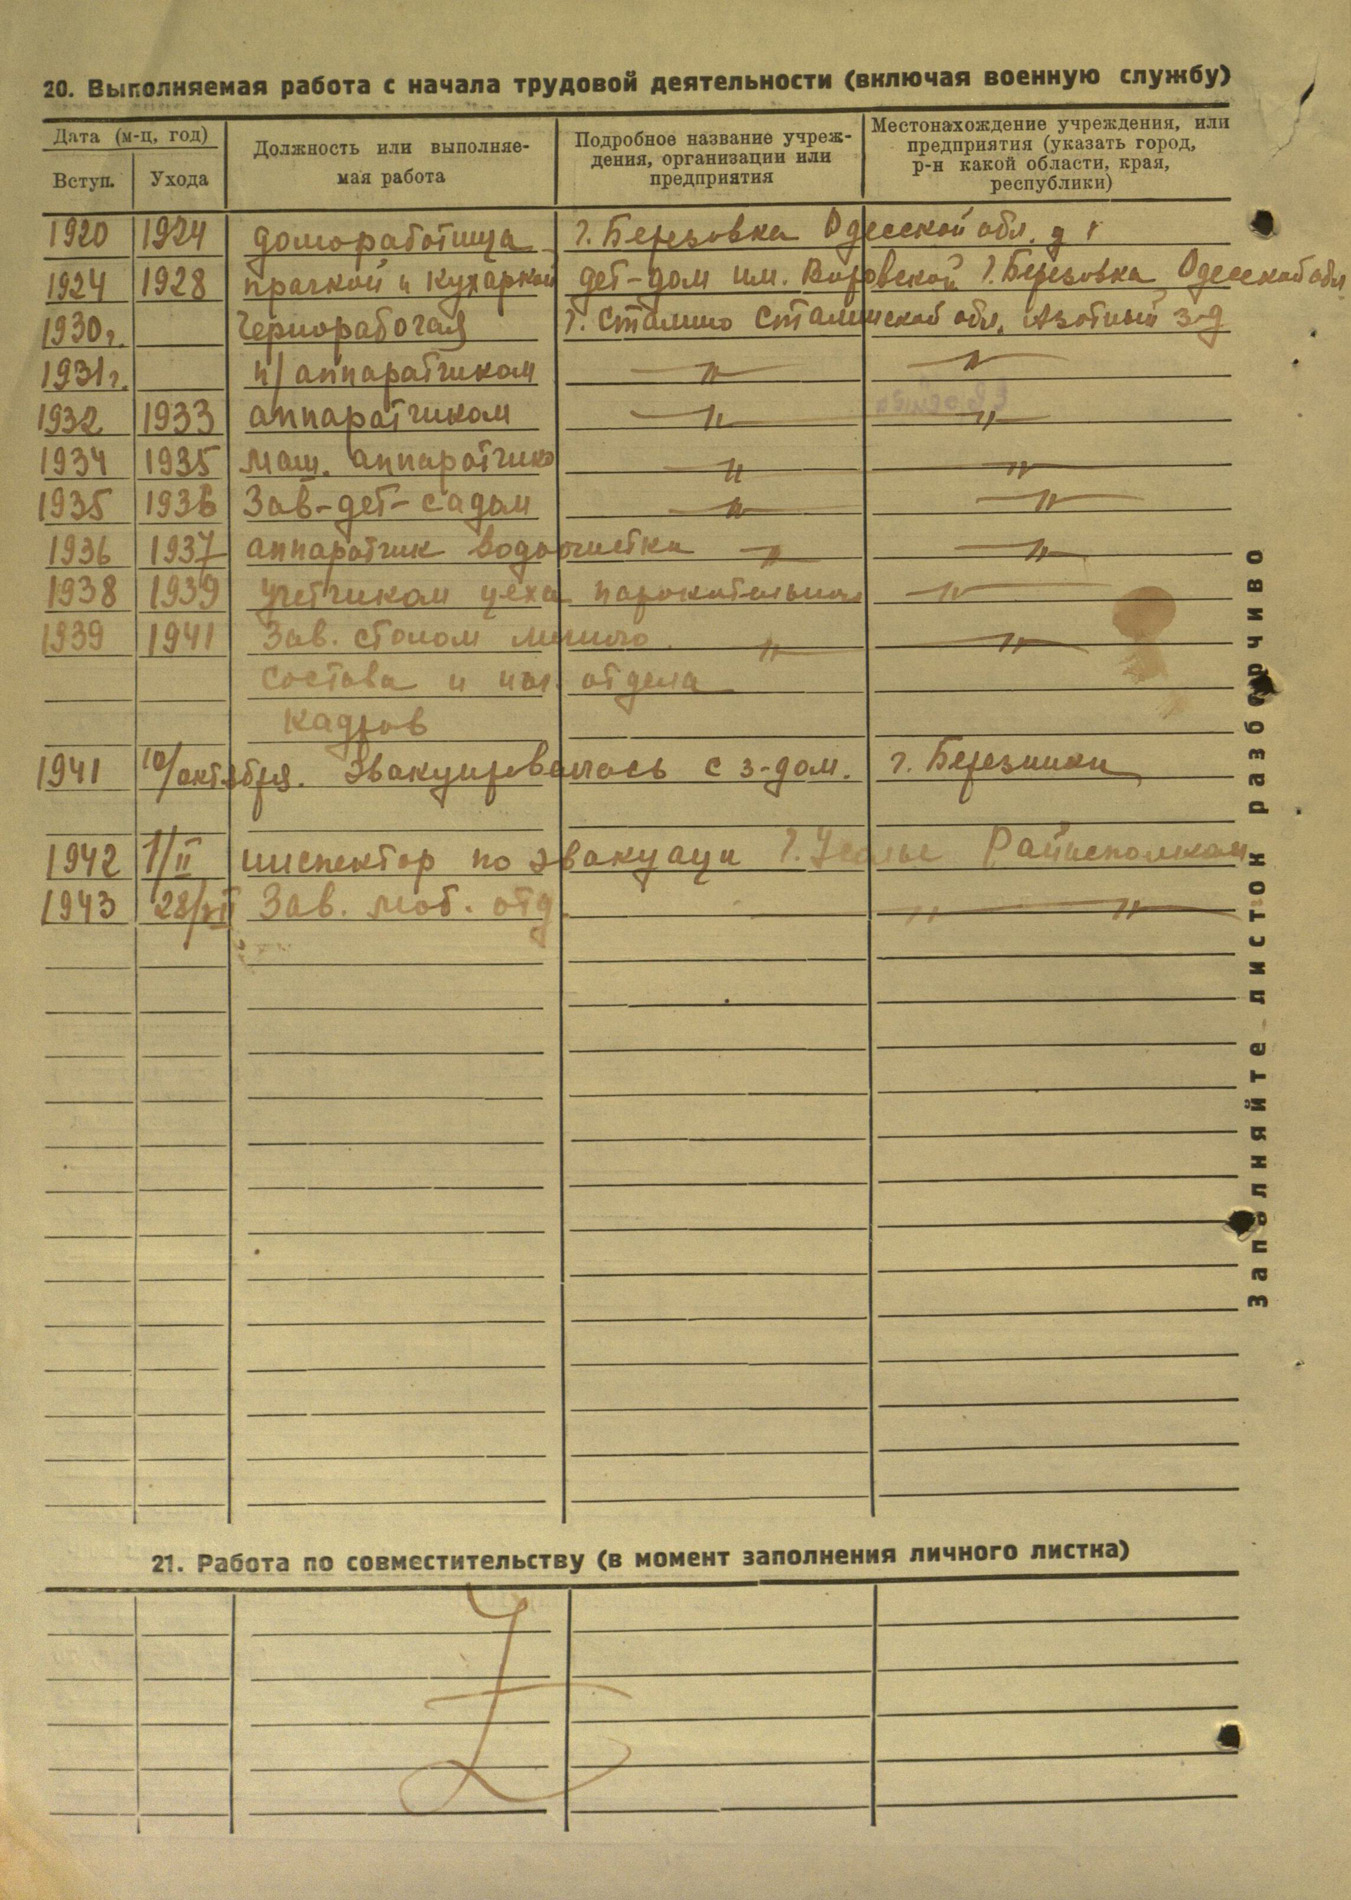 20. Выполняемая работа с начала трудовой деятельности (включая военную службу)
Дата (м-ц, год)
Вступ. Ухода
Должность или выполняе-
мая работа
Подробное название учреж-
дения, организации или
предприятия
Местонахождение учреждения, или
предприятия (указать город,
р-н какой области, края,
республики)
1920 1924 домоработница г. Березовка Одесской обл.
1924 1928 прачкой и кухаркой дет-дом им. Воровской г. Березовка Одесской обл
1930 г. Чернорабочая г. Сталино Сталинской обл. Азотный з-д
1931 г. п/аппаратчиком —"— —"—
1932 1933 аппаратчиком —"— —"—
1934 1935 маш. аппаратчико —"— —"—
1935 1936 Зав-дет-садом —"— —"—
1936 1937 аппаратчик водоочистки —"— —"—
1938 1939 учетчиком цеха —"—
1939 1941 Зав. столом личного —"— —"—
состава и нач. отдела
кадров
1941 10/октября. Эвакуировалась с з-дом. г. Березники
1942 1/II инспектор по эвакуаци г. Усолье Райисполком
1943 28/ Зав. моб. отд. —"— —"—
Заполняйте листок разборчиво
21. Работа по совместительству (в момент заполнения личного листка)